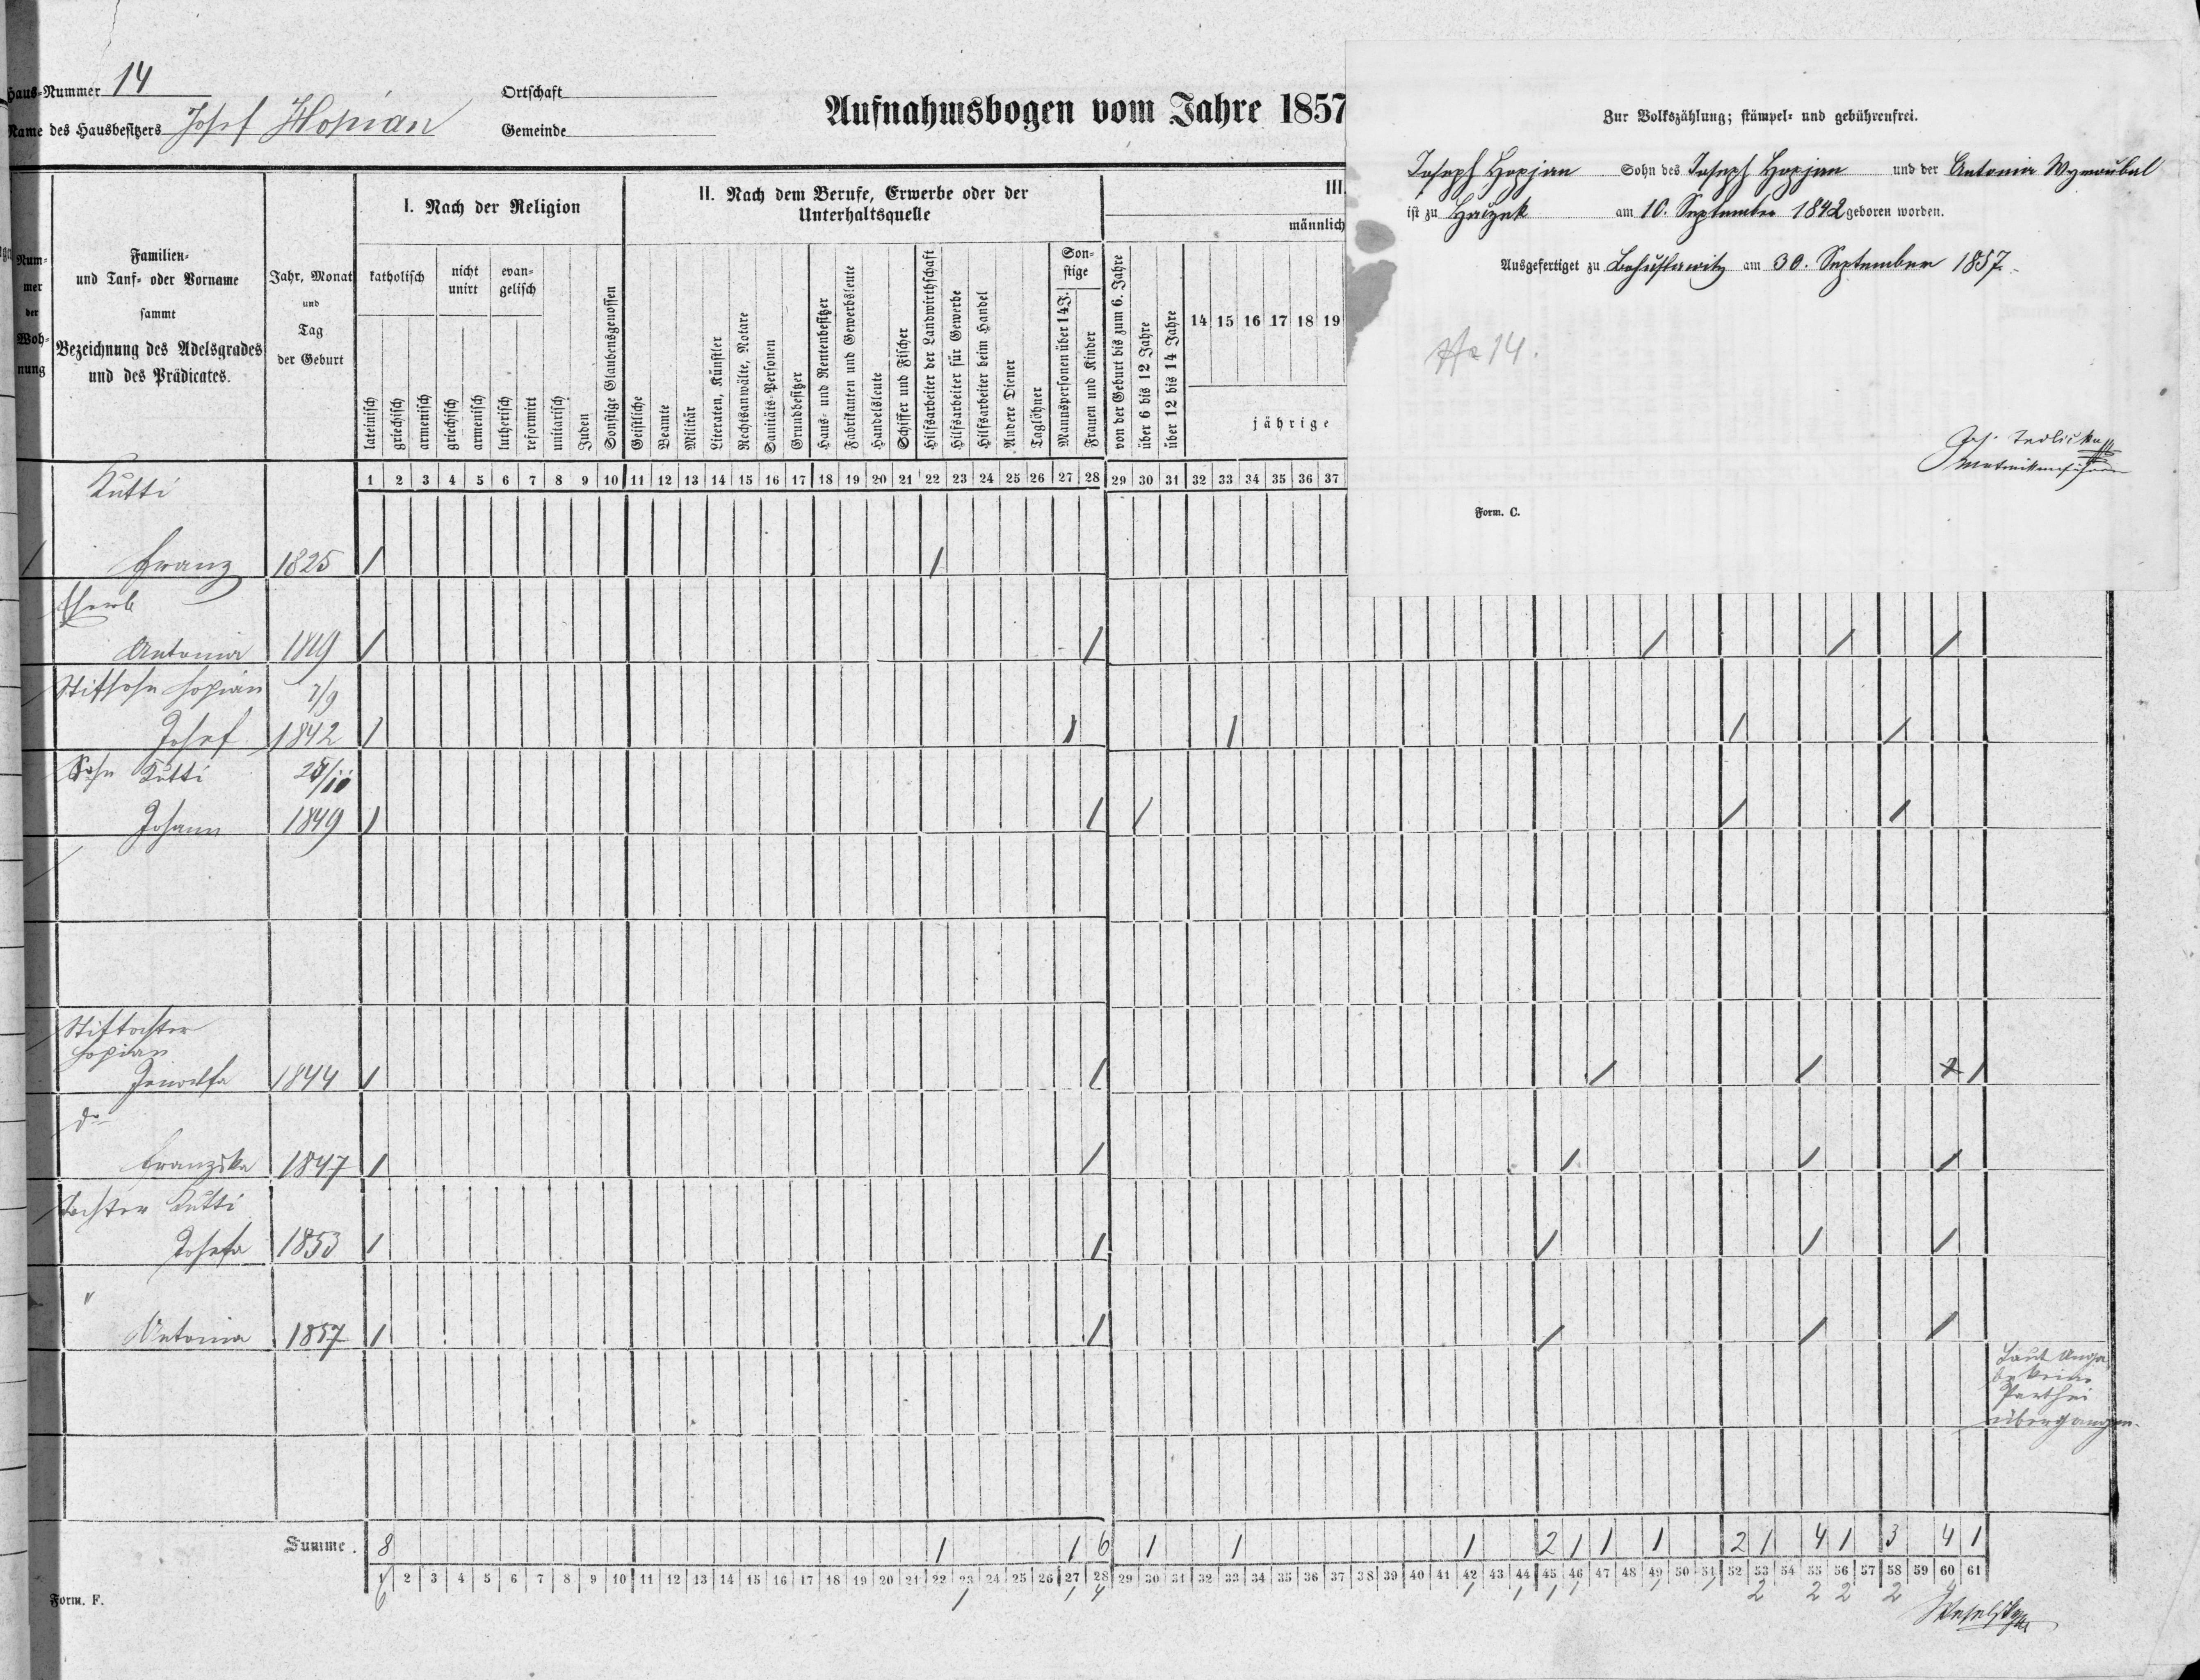 Haus-Nummer 14
Name des Hausbesitzers Josef Hopian
Ortschaft
Gemeinde
Aufnahmsbogen vom Jahre 1857
Num-
mer
der
Woh-
nung
Familien-
und Tauf- oder Vorname
sammt
Bezeichnung des Adelsgrades
und des Prädicates.
Jahr, Monat
und
Tag
der Geburt
I. Nach der Religion
katholisch
nicht
unirt
evan-
gelisch
lateinisch
griechisch
armenisch
griechisch
armenisch
lutherisch
reformirt
unitarisch
Juden
Sonstige Glaubensgenossen
II. Nach dem Berufe, Erwerbe oder der
Unterhaltsquelle
Geistliche
Beamte
Militär
Literaten, Künstler
Rechtsanwälte, Notare
Sanitäts-Personen
Grundbesitzer
Haus- und Rentenbesitzer
Fabrikanten und Gewerbsleute
Handelsleute
Schiffer und Fischer
Hilfsarbeiter der Landwirthschaft
Hilfsarbeiter für Gewerbe
Hilfsarbeiter beim Handel
Andere Diener
Taglöhner
Son-
stige
Mannspersonen über 14 J.
Frauen und Kinder
III.
männlich
von der Geburt bis zum 6. Jahre
über 6 bis 12 Jahre
über 12 bis 14 Jahre
14 15 16 17 18 19
jährige
1 2 3 4 5 6 7 8 9 10 11 12 13 14 15 16 17 18 19 20 21 22 23 24 25 26 27 28 29 30 31 32 33 34 35 36 37
Kutti
1 Franz 1825 / /
Eheweib
Antonia 1819 / / / / /
Stifsohn Hopian 7/9
Josef 1842 / / / / /
Sohn Kutti
Johann 1849 / / / / /
Stiftochter
Hopian
1844 / / / / /
do
Franziska 1847 / / / / /
Tochter Kutti
Josefa 1853 / / / / /
"
Antonia 1857 / / / / /
Laut Anga
be keine
Parthei
übergangen.
Summe. 8 1 1 6 1 1 1 2 1 1 1 2 1 4 1 3 4 1
1 2 3 4 5 6 7 8 9 10 11 12 13 14 15 16 17 18 19 20 21 22 23 24 25 26 27 28 29 30 31 32 33 34 35 36 37 38 39 40 41 42 43 44 45 46 47 48 49 50 51 52 53 54 55 56 57 58 59 60 61
6 1 1 4 1 1 1 1 1 1 2 2 2 2
Form. F.
Zur Volkszählung; stämpel- und gebührenfrei.
Joseph Hopjan Sohn des Joseph Hopjan und der Antonia Wymaubal
ist zu am 10. September 1842 geboren worden.
Ausgefertiget zu Bohuslawitz am 30. September 1857.
No 14.
Matrikenführer
Form. C.